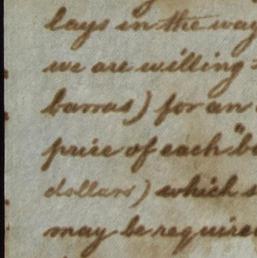 lays in the way
we are willing
barras) for an
price of each "b
dollars) which s
may be require